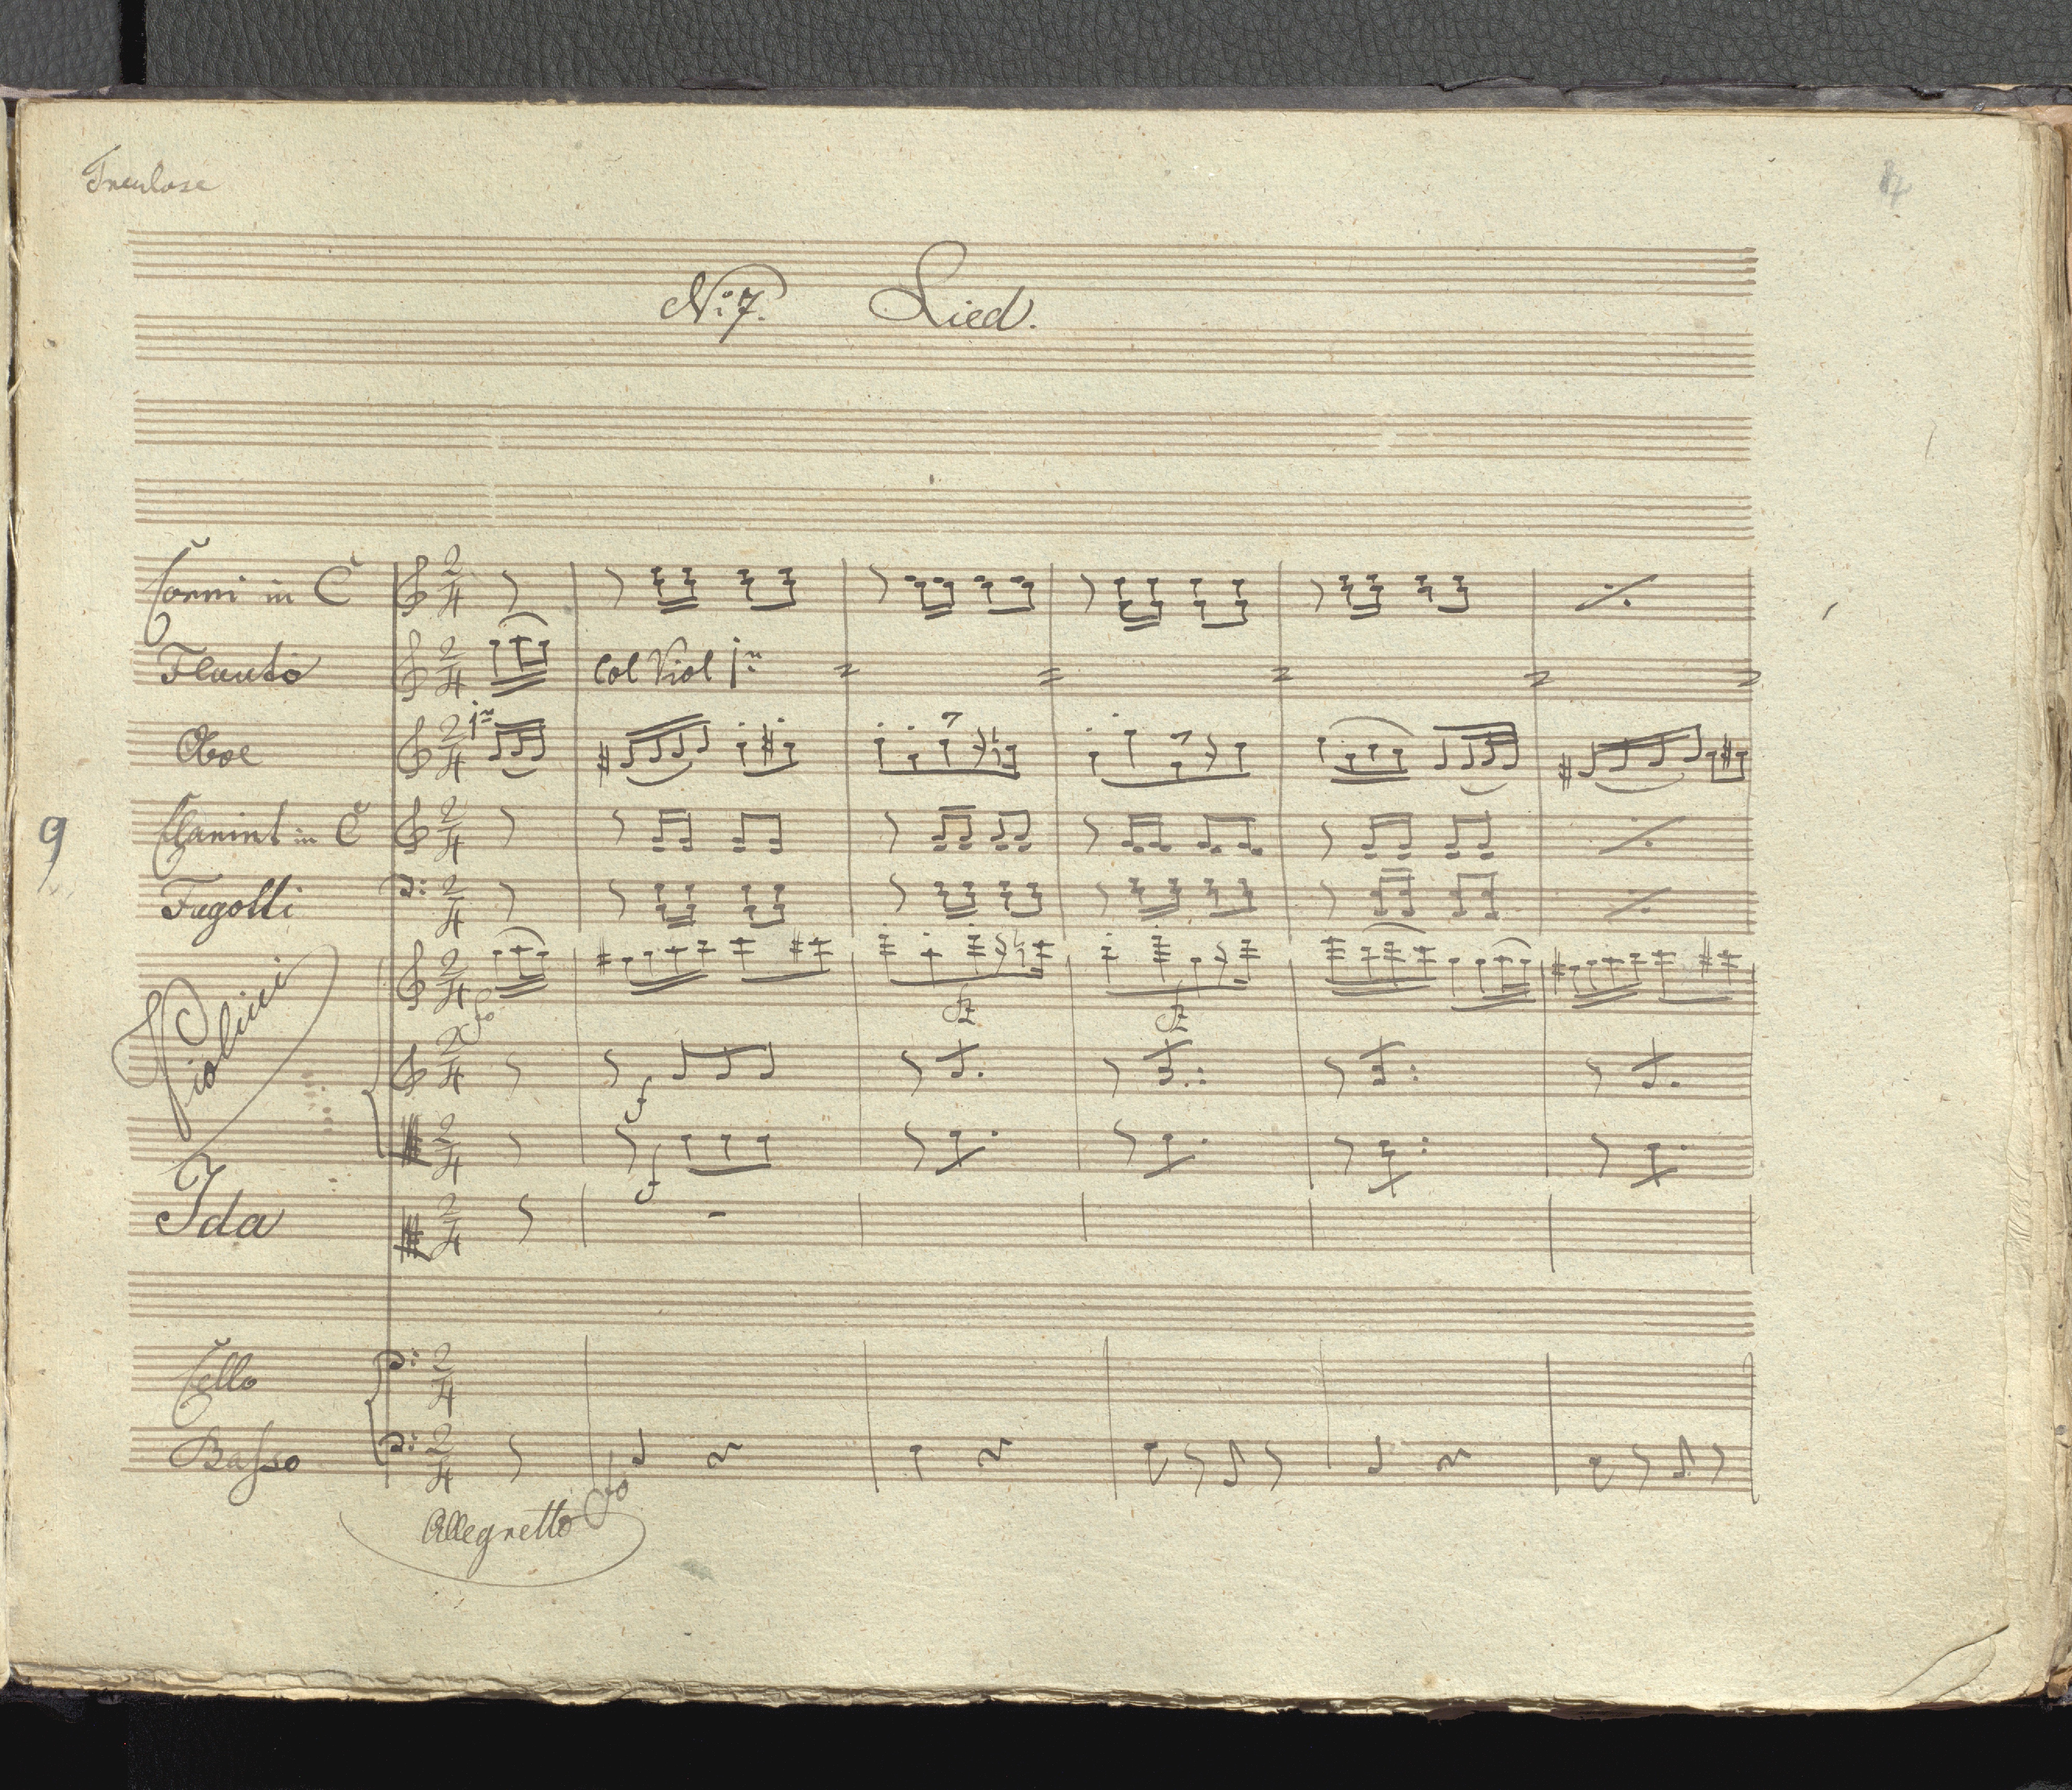 Treulose
N: 7. Lied.
Corni in C
Flauto
Col Viol 1mo
Oboe
1mo
9
Clarinet in C
Fagotti
Violini
fo
fz fz
f
f
Ida
Cello
Basso
fo
Allegretto